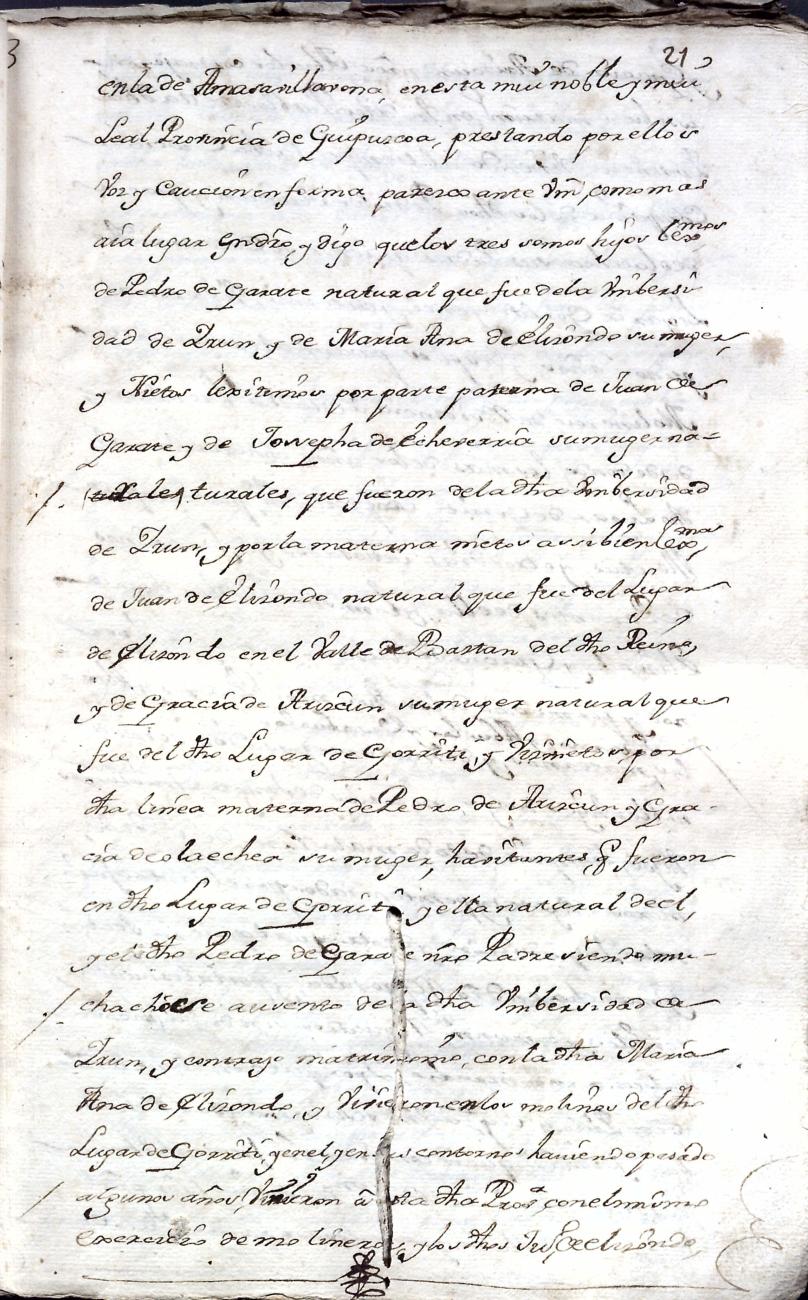 21
en la de Amasavillavona, en esta mui noble y mui
Leal Provincia de Guipuscoa, prestando por ellos
Voz y Caucion en forma parezco ante Vm, como mas
aia lugar en dro, y digo que los tres somos hijos lexmos
de Pedro de Garate natural que fue de la Vnibersi
dad de Yrun y de Maria Ana de Elisondo su muger,
y Nietos lexitimos por parte paterna de Juan de
Garate y de Jossepha de Echeverria su muger na=
turales, que fueron de la dha Vnibersidad
de Yrun, y por la materna nietos assi bien lexmos,
de Juan de Elisondo natural que fue del Lugar
de Elisondo en el Valle de Bastan del dho Reino,
y de Gracia de Arizcun su muger natural que
fue del dho Lugar de Gorriti, y Visnietos por
dha linea materna de Pedro de Arizcun y Gra-
cia de olaechea su muger, havitantes q fueron
en dho Lugar de Gorriti y ella natural de el,
y el dho Pedro de Garate nro Padre siendo mu-
chacho se ausento de la dha Vnibersidad de
Yrun, y contrajo matrimonio, con la dha Maria
Ana de Elisondo, y Vivieron en los molinos del dho
Lugar de Gorriti, y en el, y en sus contornos haviendo pasado
algunos años, Vinieron â esta dha Proa, con el mismo
exercicio de molineros, y los dhos Jun de elisondo,